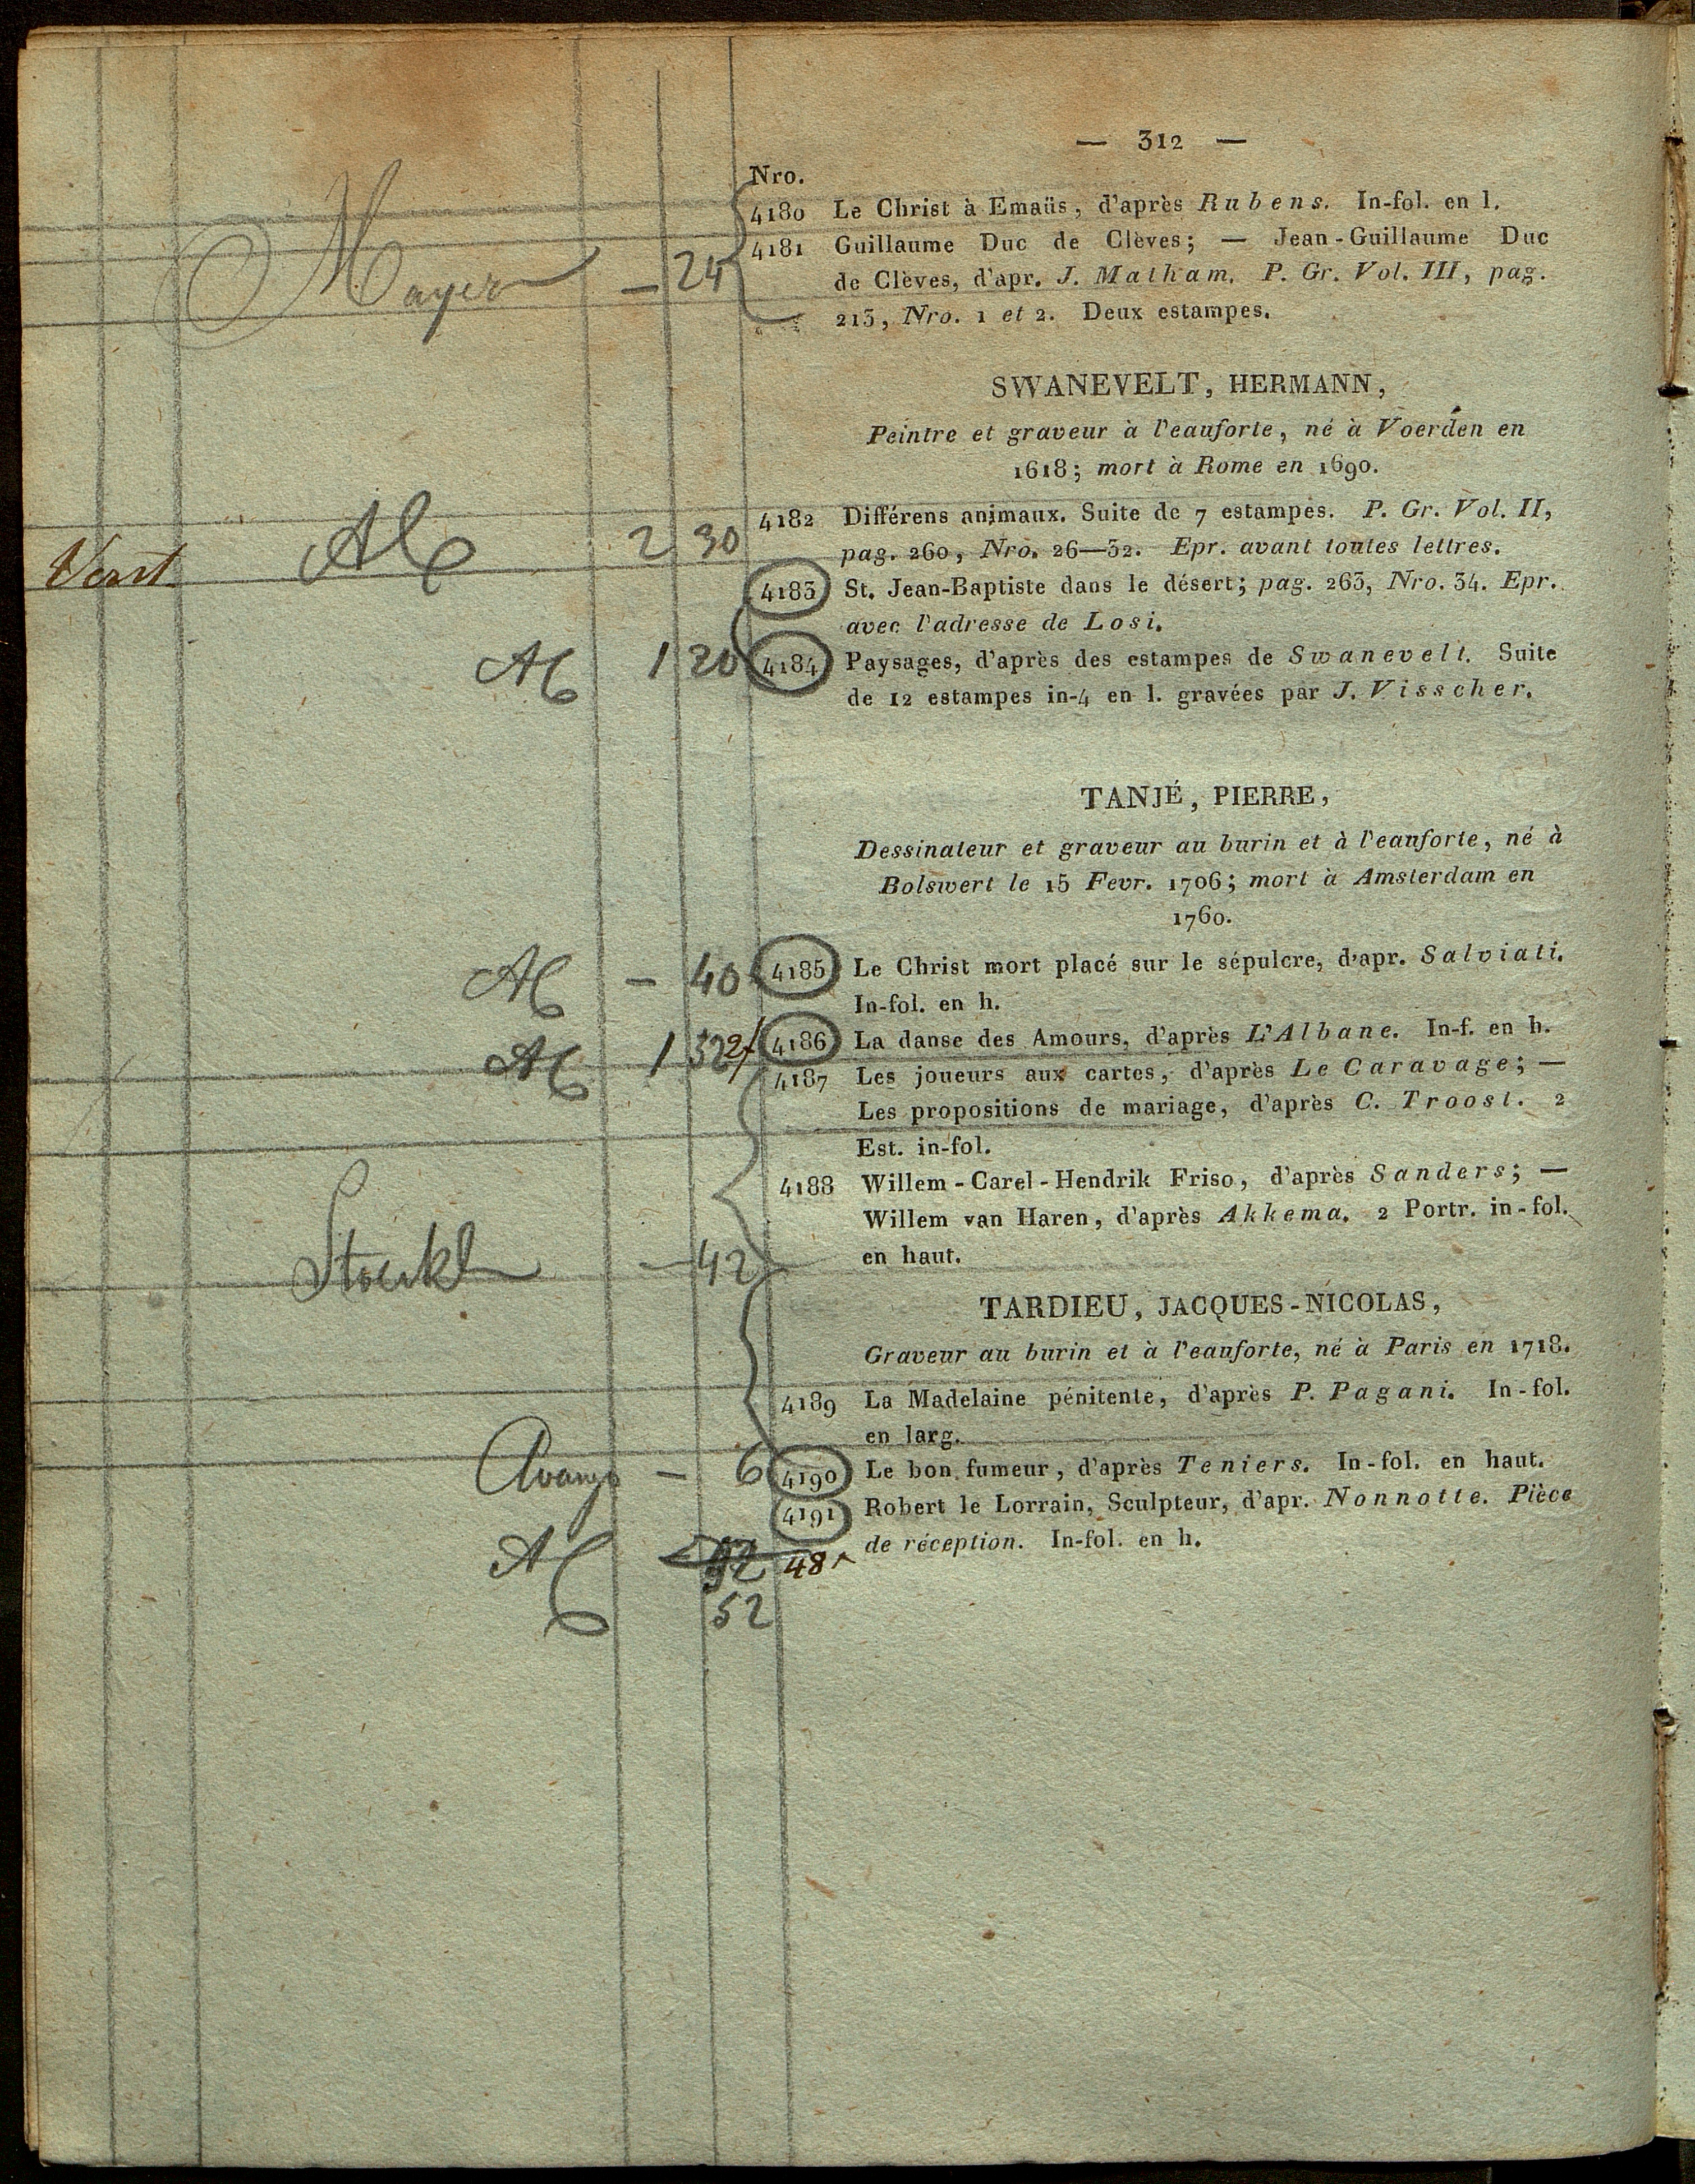 — 312 —
Nro.
4180 Le Christ à Emaüs, d'après Rubens. In-fol. en l.
4181 Guillaume Duc de Clèves; — Jean-Guillaume Duc
de Clèves, d'apr. J. Matham. P. Gr. Vol. III, pag.
Mayer — 24
213, Nro. 1 et 2. Deux estampes.
SWANEVELT, HERMANN,
Peintre et graveur à l'eauforte, né à Voerden en
1618; mort à Rome en 1690.
2 30 4182 Différens animaux. Suite de 7 estampes. P. Gr. Vol. II,
pag. 260, Nro. 26—32. Epr. avant toutes lettres.
4183 St. Jean-Baptiste dans le désert; pag. 263, Nro. 34. Epr.
avec l'adresse de Losi.
1 20 4184 Paysages, d'après des estampes de Swanevelt. Suite
de 12 estampes in-4 en l. gravées par J. Visscher.
TANJÉ, PIERRE,
Dessinateur et graveur au burin et à l'eauforte, né à
Bolswert le 15 Fevr. 1706; mort à Amsterdam en
1760.
— 40 4185 Le Christ mort placé sur le sépulcre, d'apr. Salviati.
In-fol. en h.
1 4186 La danse des Amours, d'après L'Albane. In-f. en h.
4187 Les joueurs aux cartes, d'après Le Caravage; —
Les propositions de mariage, d'après C. Troost. 2
Est. in-fol.
4188 Willem-Carel-Hendrik Friso, d'après Sanders; —
Willem van Haren, d'après Akkema. 2 Portr. in-fol.
Stoeckl — 42 en haut.
TARDIEU, JACQUES-NICOLAS,
Graveur au burin et à l'eauforte, né à Paris en 1718.
4189 La Madelaine pénitente, d'après P. Pagani. In-fol.
en larg.
— 6 4190 Le bon fumeur, d'après Teniers. In-fol. en haut.
4191 Robert le Lorrain, Sculpteur, d'apr. Nonnotte. Pièce
48 de réception. In-fol. en h.
52